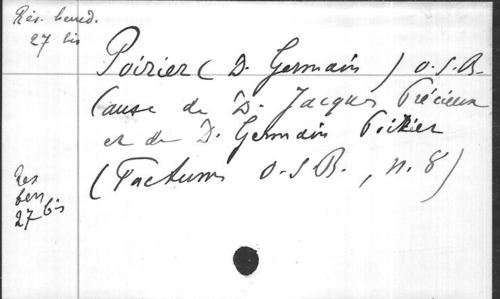 Rés. bened.
27 bis
Poirier ( D. Germain ) O.S.B.
Cause de D. Jacques Précieux
et de D. Germain Poirier
( Factums O.S.B., n. 8 )
Res
ben
27 bis